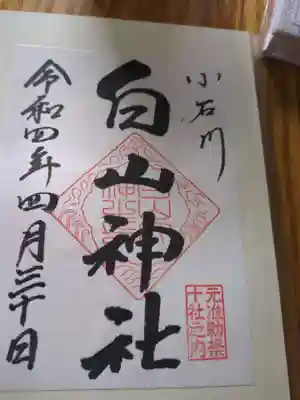 小石川
白山神社
令和四年四月三十日
元准勅祭
十社之内